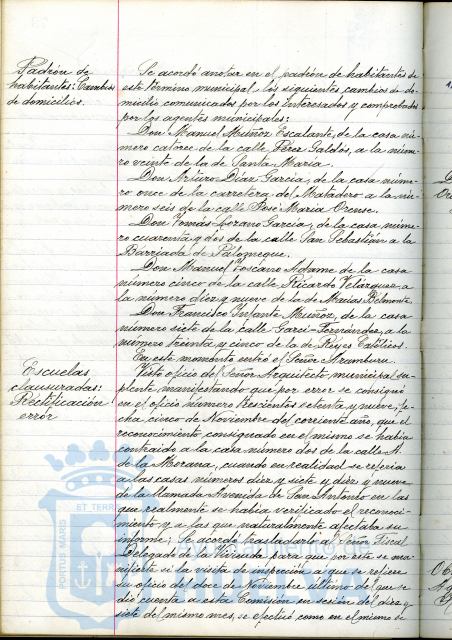 Padrón de
habitantes: Cambios
de domicilios.
Se acordó anotar en el padrón de habitantes de
este término municipal, los siguientes cambios de do-
micilio comunicados por los interesados y comprobados
por los agentes municipales:
Don Manuel Muñoz Escalante, de la casa nú-
mero catorce de la calle Pérez Galdós, a la núme-
ro veinte de la de Santa María.
Don Arturo Díaz García, de la casa núme-
ro once de la carretera del Matadero a la nú-
mero seis de la calle José María Orense.
Don Tomás Lozano García, de la casa núme-
ro cuarenta y dos de la calle San Sebastián a la
Barriada de Palomeque.
Don Manuel Toscano Adame de la casa
número cinco de la calle Ricardo Velázquez, a
la número diez y nueve de la de Macías Belmonte.
Don Francisco Infante Muñoz, de la casa
número siete de la calle Garci-Fernández, a la
número treinta y cinco de la de Reyes Católicos.
En este momento entró el Señor Aramburu.
Escuelas
clausuradas:
Rectificación
error
Visto oficio del Señor Arquitecto municipal su-
plente, manifestando que por error se consignó
en el oficio número trescientos setenta y nueve, fe-
cha cinco de Noviembre del corriente año, que el
reconocimiento consignado en el mismo se había
contraído a la casa número dos de la calle A.
de la Morana, cuando en realidad se refería
a las casas números diez y siete y diez y nueve
de la llamada Avenida de San Antonio en las
que realmente se había verificado el reconoci-
miento y a las que naturalmente afectaba su
informe; Se acordó trasladarlo al Señor Fiscal
Delegado de la Vivienda para que por este se ma-
nifieste si la visita de inspección a que se refiere
su oficio del doce de Noviembre último del que se
dió cuenta a esta Comisión en sesión del diez y
siete del mismo mes, se efectuó como en el mismo se
PORTUS MARIS
ET TERRA